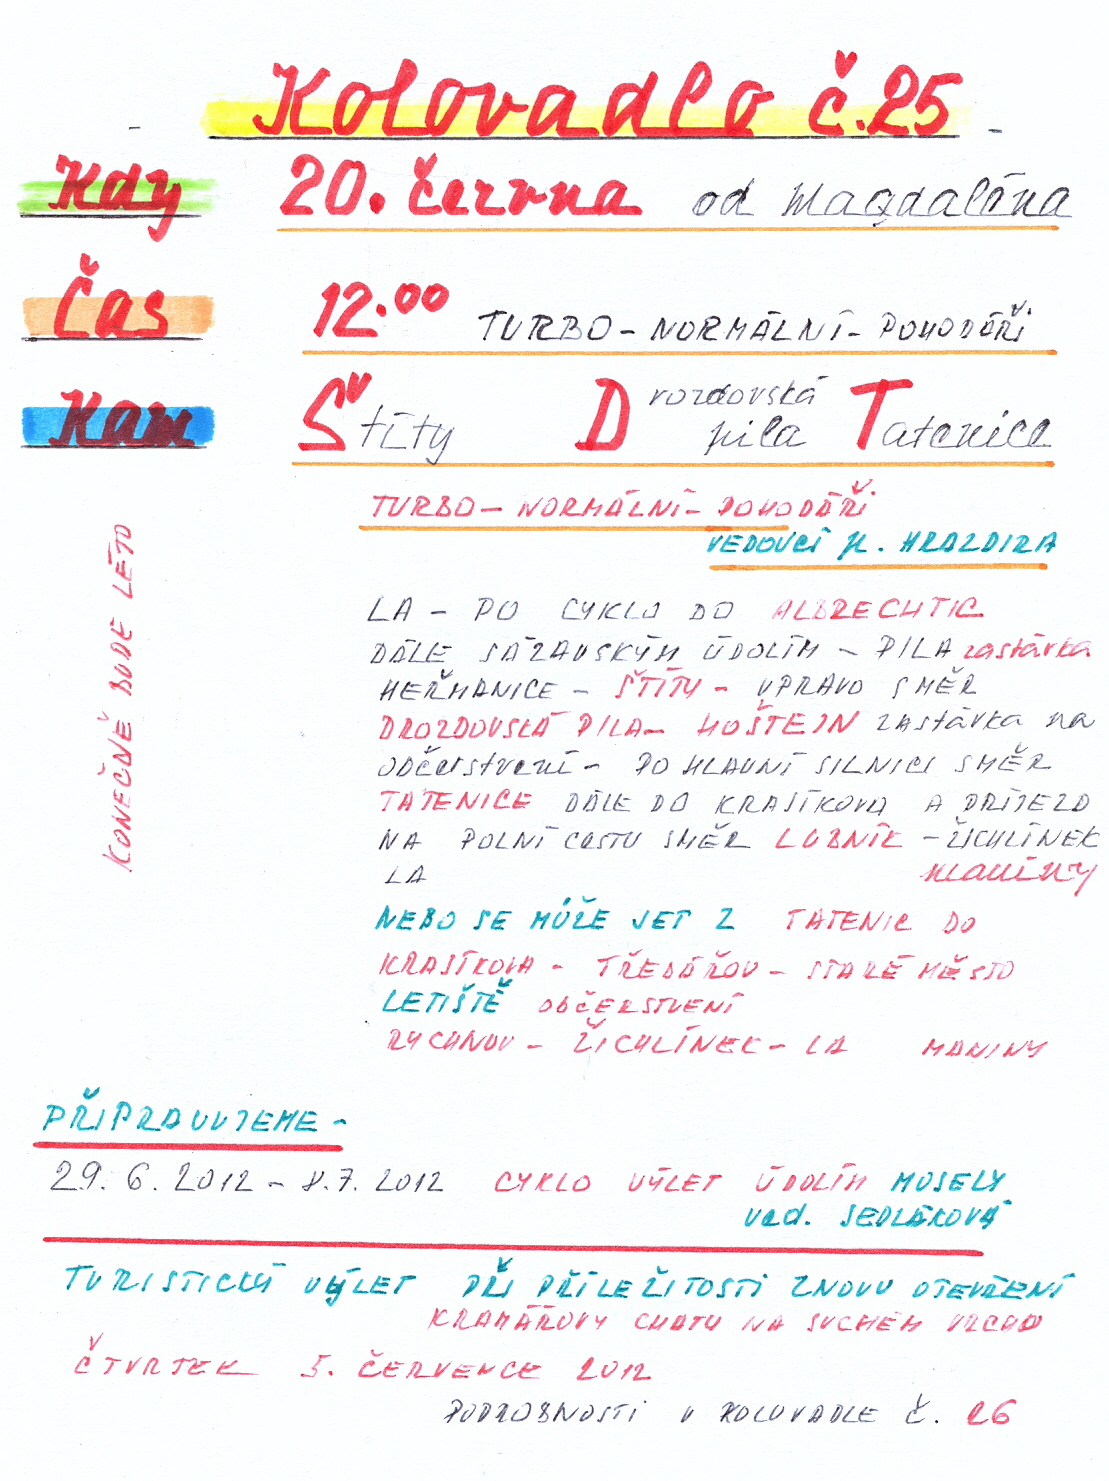 Kolovadlo č. 25
Kdy 20. června od Magdaléna
Čas 12.00 TURBO - NORMÁLNÍ - POHODÁŘI
Kam Štíty Drozdovská pila Tatenice
TURBO - NORMÁLNÍ - POHODÁŘI
VEDOUCÍ p. HRAZDIRA
KONEČNĚ BUDE LÉTO
LA - PO CYKLO DO ALBRECHTIC
DÁLE SÁZAVSKÝM ÚDOLÍM - PILA zastávka
HEŘMANICE - ŠTÍTY - VPRAVO SMĚR
DROZDOVSKÁ PILA - HOŠTEJN zastávka na
občerstvení - PO HLAVNÍ SILNICI SMĚR
TATENICE DÁLE DO KRASÍKOVA A PŘÍJEZD
NA POLNÍ CESTU SMĚR LUBNÍK - ŽICHLÍNEK
LA
NEBO SE MŮŽE JET Z TATENIC DO
KRASÍKOVA - TŘEBÁŘOV - STARÉ MĚSTO
LETIŠTĚ OBČERSTVENÍ
RYCHNOV - ŽICHLÍNEK - LA MANINY
PŘIPRAVUJEME -
29. 6. 2012 - 8. 7. 2012 CYKLO VÝLET ÚDOLÍM MOSELY
ved. SEDLÁKOVÁ
TURISTICKÝ VÝLET PŘI PŘÍLEŽITOSTI ZNOVU OTEVŘENÍ
KRAMÁŘOVY CHATY NA SUCHÉM VRCHU
ČTVRTEK 5. ČERVENCE 2012
PODROBNOSTI V KOLOVADLE Č. 26